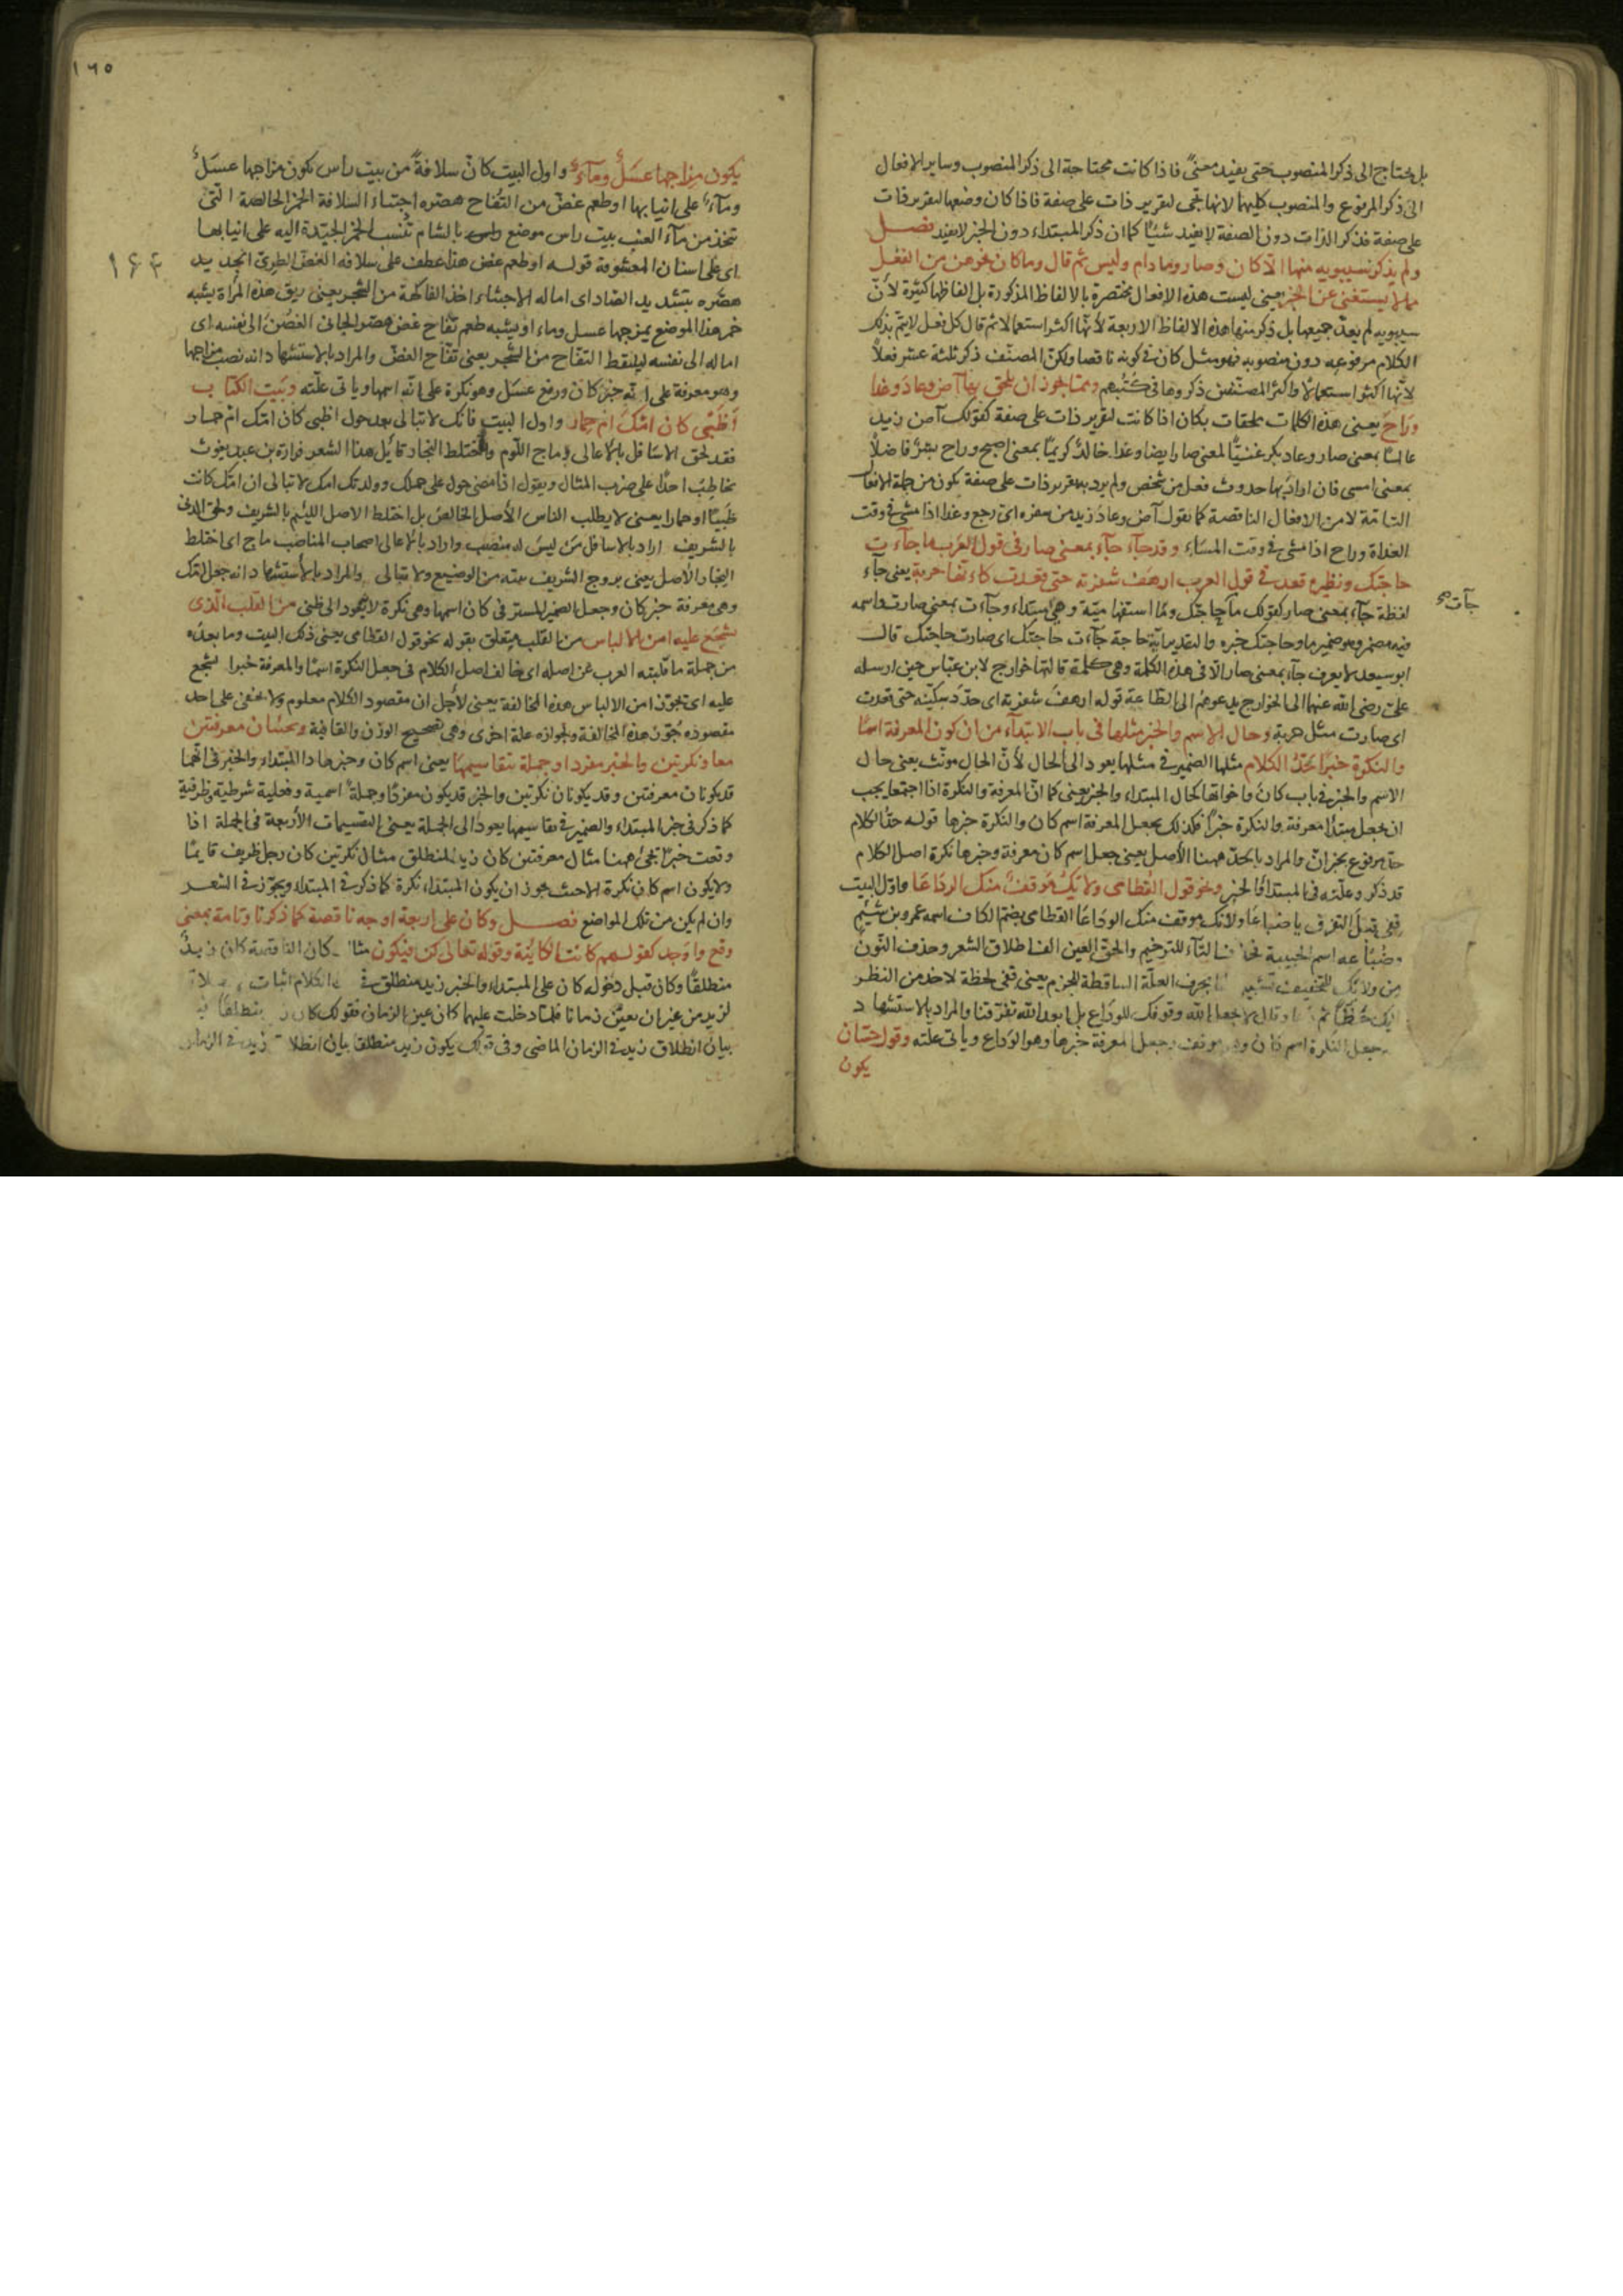 بل يحتاج الى ذكر المنصوب حتى يفيد معنىً فاذا كانت محتاجة الى ذكر المنصوب وساير الافعال
الى ذكر المرفوع والمنصوب كليهما لانها تجى لتقرير ذات على صفة فاذا كان وضعها لتقرير ذات
على صفة فذكر الذات دون الصفة لا يفيد شيئا كما ان ذكر المبتداء دون الخبر لا يفيد فصل
ولم يذكر سيبويه منها الّا كان وصار وما دام وليس ثم قال وما كان نحوهن من الفعل
مما لا يستغنى عن الخبر يعنى ليست هذه الافعال مختصرة بالالفاظ المذكورة بل الفاظها كثيرة لأنّ
سيبويه لم يعدّ جميعها بل ذكر منها هذه الالفاظ الاربعة لأنّها اكثر استعمالا ثم قال كل فعل لا يتم بذلك
الكلام مرفوعه دون منصوبه فهو مثل كان فى كونه ناقصا ولكنّ المصنّف ذكر ثلثة عشر فعلاً
لأنّها اكثر استعمالا واكثر المصنّفين ذكروها فى كتبهم ومما يجوز ان يلحق بها آض وعاد وغدا
وراح يعنى هذه الكلمات ملحقات بكان اذا كانت لتقرير ذات على صفة كقولك آض زيد
عالما بمعنى صار وعاد بكر غنيّاً بمعنى صار ايضا وغدا خالد كريمًا بمعنى اصبح وراح بشرٌ فاضلاً
بمعنى امسى فان اراد بها حدوث فعل من شخص ولم يرد بها تقرير ذات على صفة يكون من جملة الافعال
التامّة لا من الافعال الناقصة كما تقول آض وعاد زيد من سفره اى رجع وغدا اذا مشى فى وقت
الغداة وراح اذا مشى فى وقت المساء وقد جآء جآء بمعنى صار فى قول العرب ما جآءت
حاجتك ونظيره قعد فى قول العرب ارهف شفرته حتى قعدت كانها حربة يعنى جآء
جآت
لفظة جآء بمعنى صار كقولك ما جآء حاجتك وما استفهاميّة وهى مبتداء وجآءت بمعنى صارت واسمه
فيه مضمر وهو ضمير ما وحاجتك خبره والتقدير ايّة حاجة جآءت حاجتك اى صارت حاجتك قال
ابو سعيد لا يعرف جآء بمعنى صار الّا فى هذه الكلمة وهى كلمة قالتها خوارج لابن عبّاس حين ارسله
علىّ رضى الله عنهما الى الخوارج يدعوهم الى الطاعة قوله ارهف شفرته اى حدّد سكّينه حتى قعدت
اى صارت مثل حربة وحال الاسم والخبر مثلها فى باب الابتداء من ان كون المعرفة اسمًا
والنكرة خبرًا حدّ الكلام مثلها الضمير فى مثلها يعود الى الحال لأنّ الحال مونّث يعنى حال
الاسم والخبر فى باب كان واخواتها كحال المبتداء والخبر يعنى كما انّ المعرفة والنكرة اذا اجتمعا يجب
ان يجعل مبتدأ معرفة والنكرة خبرًا فكذلك يجعل المعرفة اسم كان والنكرة خبرها قوله حدّ الكلام
حدّ مرفوع بخبر انّ والمراد بالحدّ ههنا الأصل يعنى جعل اسم كان معرفة وخبرها نكرة اصل الكلام
قد ذكر وعلّته فى المبتدا والخبر ونحو قول القطامى ولا يك موقف منك الوداعا واوّل البيت
قفى قبل التفرق يا ضباعا ولا يك موقف منك الوداعا القطامى بضم الكاف اسمه عمرو بن شييم
وضباعه اسم الحبيبة فحذف التاء للترخيم والحق العين الف اطلاق الشعر وحذف النون
من ولا تك للتخفيف بحرف العلّة الساقطة للجزم يعنى قفى لحظة لاخذ من النظر
وقال لا جعل الله وقوفك للوداع بل ابعد الله تفرّقنا والمراد بالاستشهاد
جعل النكرة اسم كان وهو موقف وجعل المعرفة خبرها وهو الوداع وياتى علته وقول حسان
يكون
١٦٥
يكون مزاجها عسلٌ ومآءٌ واول البيت كانّ سلافةً من بيت راس تكون مزاجها عسلٌ
ومآءٌ على انيابها او طعم غضّ من التفاح هصّره اجتناء السلافة الخمر الخالصة التى
تتخذ من مآء العنب بيت راس موضع بالشام تنسب الخمر الجيّدة اليه على انيابها
١٦٤
اى على اسنان المعشوقة قوله او طعم غض هذا عطف على سلافه الغضّ الطرىّ الجديد
هصّره بتشديد الصاد اى اماله الاجتناء اخذ الفاكهة من الشجر يعنى ريق هذه المراة يشبه
خمر هذا الموضع يمزجها عسل وماء او يشبه طعم تفّاح غض هصر الجانى الغصن الى نفسه اى
اماله الى نفسه ليلتقط التفّاح من الشجر يعنى تفّاح الغضّ والمراد بالاستشهاد انه نصب مزاجها
وهو معرفة على انّه خبر كان ورفع عسل وهو نكرة على انّه اسمها وياتى علّته وبيت الكتاب
أظبى كان امّك ام حمار واول البيت فانك لا تبالى بعد حول اظبى كان امّك ام حمار
فقد لحق الاسافل بالاعالى وماج اللوم واختلط النجار قايل هذا الشعر فزارة بن عبد يغوث
يخاطب احدًا على ضرب المثال ويقول اذا مضى حول على حملك وولدتك امك لا تبالى ان امّك كانت
ظبيًا او حمارا يعنى لا يطلب الناس الأصل الخالص بل اختلط الاصل اللئيم بالشريف ولحق الدنى
بالشريف اراد بالاسافل من ليس له منصب واراد بالاعالى اصحاب المناصب ماج اى اختلط
النجار الأصل يعنى بزوج الشريف بنته من الوضيع ولا تبالى والمراد بالاستشهاد انه جعل امّك
وهى معرفة خبر كان وجعل الضمير المستتر فى كان اسمها وهى نكرة لانه يعود الى ظبى من القلب الّذى
يشجع عليه امن الالباس من القلب يتعلق بقوله نحو قول القطامى يعنى ذلك البيت وما بعده
من جملة ما قلبته العرب عن اصله اى خالف اصل الكلام فى جعل النكرة اسمًا والمعرفة خبرا يشجع
عليه اى يجوّز امن الالباس هذه المخالفة يعنى لأجل ان مقصود الكلام معلوم ولا يخفى على احد
مقصوده جوّز هذه المخالفة ولجوازه علة اخرى وهى تصحيح الوزن والقافية ويحسان معرفتين
معا ونكرتين والخبر مفردا وجملة بتقاسيمها يعنى اسم كان وخبرها كالمبتداء والخبر فى انّهما
قد يكونان معرفتين وقد يكونان نكرتين والخبر قد يكون مفردًا وجملةً اسمية وفعلية شرطية وظرفية
كما ذكر فى خبر المبتداء والضمير فى تقاسيمها يعود الى الجملة يعنى التقسيمات الأربعة فى الجملة اذا
وقعت خبرًا تجئ ههنا مثال معرفتين كان زيد المنطلق مثال نكرتين كان رجل ظريف قايمًا
ولا يكون اسم كان نكرة الا حيث يجوز ان يكون المبتداء نكرة كما ذكر فى المبتداء ويجوّز فى الشعر
وان لم يكن من تلك المواضع فصل وكان على اربعة اوجه ناقصة كما ذكرنا وتامة بمعنى
وقع ووجد كقولهم كانت الكاينة وقوله تعالى كن فيكون مثال كان الناقصة كان زيدٌ
منطلقًا وكان قبل دخوله كان على المبتداء والخبر زيد منطلق فى الكلام اثبات
لزيد من غير ان يعيّن زمانا فلمّا دخلت عليها كان عين الزمان فقولك كان زيد منطلقًا فيه
بيان انطلاق زيد فى الزمان الماضى وفى قولك يكون زيد منطلقا بيان انطلاق زيد فى الزمان